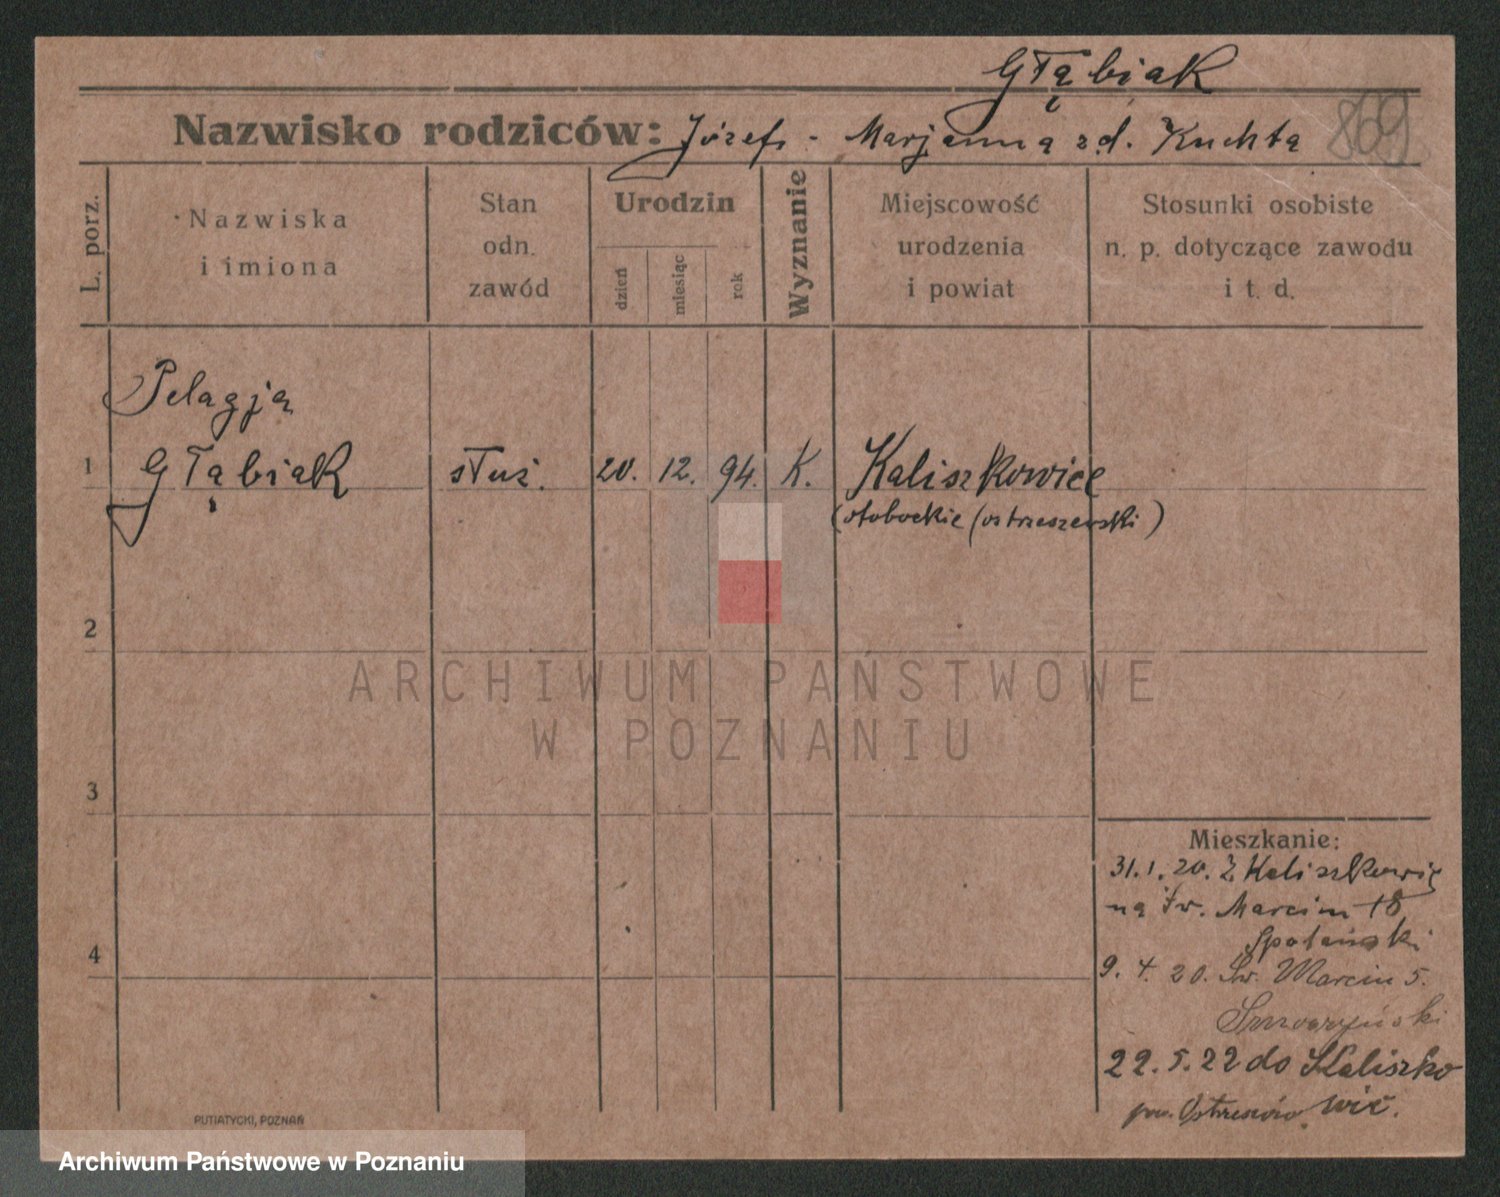 Głąbiak
869
Nazwisko rodziców: Józef - Marjanna zd. Kuchta
L. porz.
Nazwiska
i imiona
Stan
odn.
zawód
Urodzin
dzień
miesiąc
rok
Wyznanie
Miejscowość
urodzenia
i powiat
Stosunki osobiste
n. p. dotyczące zawodu
i t. d.
Pelagja
1 Głąbiak służ. 20. 12. 94. K. Kaliszkowice
(ołobockie (ostrzeszewski)
2
3
4
Mieszkanie:
31.1.20. z Kaliszkowic
na św. Marcin 18
9. 4. 20. Św. Marcin 5.
22.5.22 do Kaliszko
pow. Ostrzeszów wic.
PUTIATYCKI, POZNAŃ
ARCHIWUM PAŃSTWOWE
W POZNANIU
Archiwum Państwowe w Poznaniu